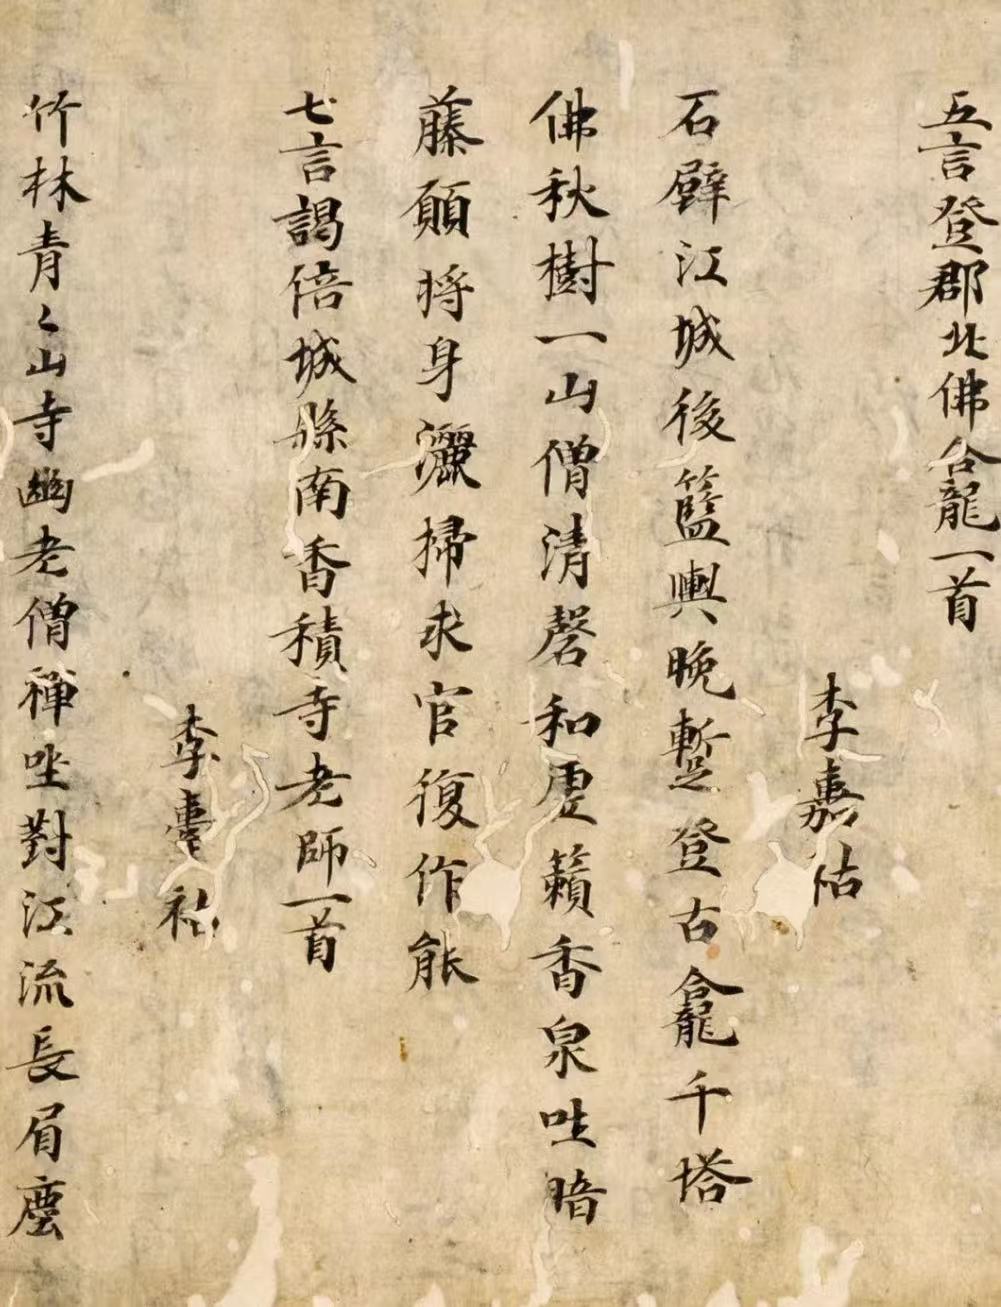 五言登郡北佛龕一首
李嘉祐
石壁江城後籃輿晚蹔登古龕千塔
佛秋樹一山僧清磬和虛籟香泉吐暗
藤願將身灑掃求官復作能
七言謁倍城縣南香積寺老師一首
李臺祐
竹林青〻山寺幽老僧禪坐對江流長眉塵